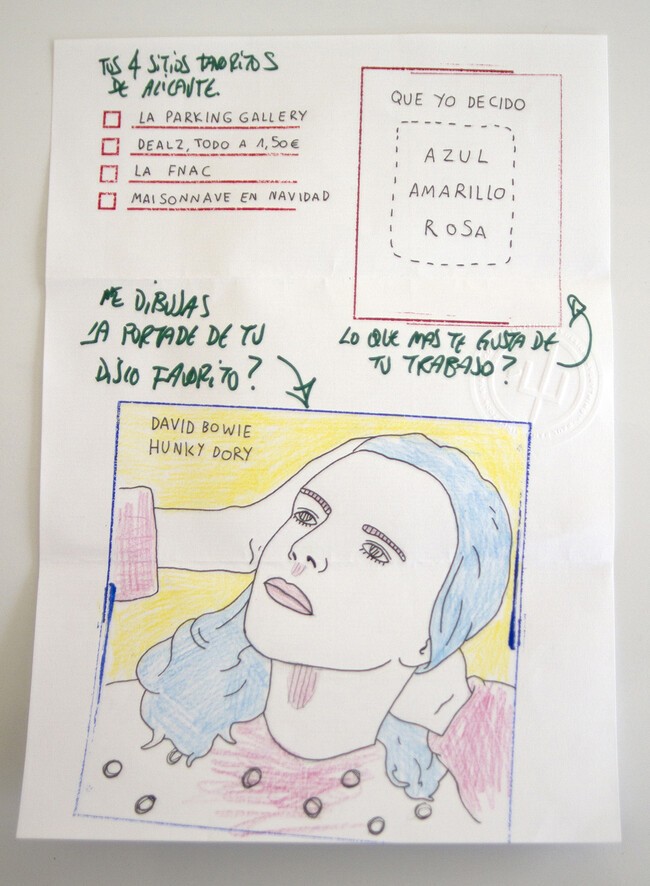 TUS 4 SITIOS FAVORITOS
DE ALICANTE.
LA PARKING GALLERY
DEALZ, TODO A 1,50€
LA FNAC
MAISONNAVE EN NAVIDAD
QUE YO DECIDO
AZUL
AMARILLO
ROSA
LO QUE MAS TE GUSTA DE
TU TRABAJO?
ME DIBUJAS
LA PORTADE DE TU
DISCO FAVORITO?
DAVID BOWIE
HUNKY DORY